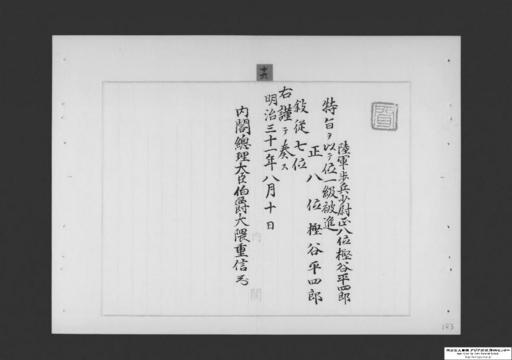 陸軍歩兵少尉正八位樫谷平四郎
特旨ヲ以テ位一級被進
正八位樫谷平四郎
敍從七位
右謹テ奏ス
明治三十一年八月十日
内閣總理大臣伯爵大隈重信